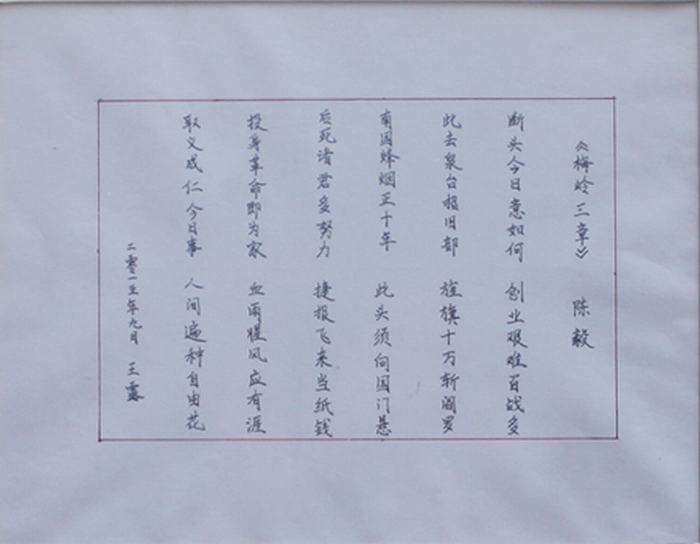 《梅岭三章》 陈毅
断头今日意如何 创业艰难百战多
此去泉台招旧部 旌旗十万斩阎罗
南国烽烟正十年 此头须向国门悬
后死诸君多努力 捷报飞来当纸钱
投身革命即为家 血雨腥风应有涯
取义成仁今日事 人间遍种自由花
二零一五年九月 王露